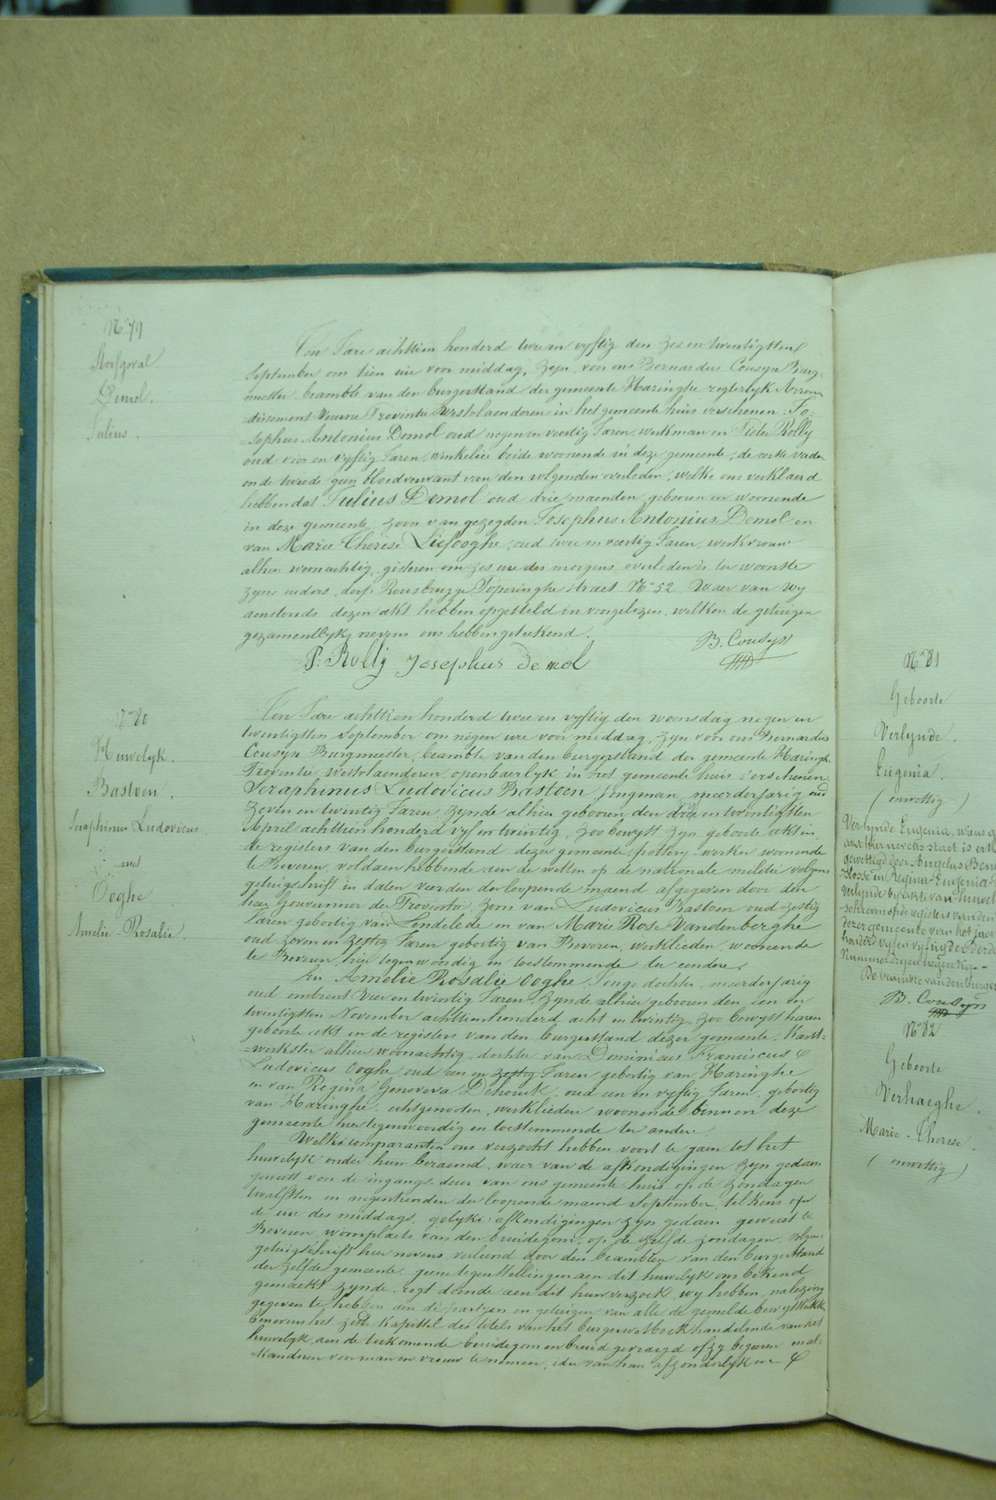 N° 79
Sterfgeval
Demol.
Julius.
Ten Jare achttien honderd twee en vyftig den zes en twintigsten
September om tien ure voor middag, zyn voor ons Bernardus Cousyn Burg-
meester, beambte van den burgerstand der gemeente Haringhe regterlyk Arron-
dissement Veurne Provintie Westvlaenderen in het gemeente huis verschenen Jo-
sephus Antonius Demol oud negen en veertig Jaren, werkman en Pieter Rolly
oud vier en vyftig Jaren, winkelier beide woonende in deze gemeente, de eerste vader
en de tweede geen bloedverwant van den volgenden overleden, welke ons verklaerd
hebben dat Julius Demol oud drie maenden, geboren en woonende
in deze gemeente, zoon van gezegden Josephus Antonius Demol en
van Marie Therese Liefooghe, oud twee en veertig Jaren, werkvrouw
alhier woonachtig, gisteren om zes ure des morgens overleden is ter woonste
zyner ouders, dorp Rousbrugge Poperinghe straet N° 52. Waer van wy
aenstonds dezen akt hebben opgesteld en voorgelezen, welken de getuigen
gezamentlyk nevens ons hebben geteekend.
B. Cousyn
P. Rolly Josephus Demol
N° 80
Huwelyk.
Basteen.
Seraphinus Ludovicus
en
Ooghe
Amelie-Rosalie.
Ten Jare achttien honderd twee en vyftig den woensdag negen en
twintigsten September om negen ure voor middag, zyn voor ons Bernardus
Cousyn Burgmeester, beambte van den burgerstand der gemeente Haringhe
Provintie Westvlaenderen openbaerlyk in het gemeente huis verschenen
Seraphinus Ludovicus Basteen, jongman, meerderjarig oud
zeven en twintig Jaren, zynde alhier geboren den drie en twintigsten
April achttien honderd vyf en twintig, zoo bewyst zyn geboorte akt in
de registers van den burgerstand dezer gemeente, pottery-werker woonende
te Beveren, voldaen hebbende aen de wetten op de nationale militie volgens
getuigschrift in daten vierden der loopende maend afgegeven door den
heer Gouverneur der Provintie, zoon van Ludovicus Basteen oud zestig
Jaren geboortig van Lendelede en van Marie Rose Vandenberghe
oud zeven en zestig Jaren geboortig van Beveren, werklieden, woonende
te Beveren, hier tegenwoordig en toestemmende ter eendere.
En Amelie Rosalie Ooghe, Jonge dochter, meerderjarig
oud omtrent vier en twintig Jaren, zynde alhier geboren den een en
twintigsten November achttien honderd acht en twintig, zoo bewyst haren
geboorte akt in de registers van den burgerstand dezer gemeente, kant-
werkster alhier woonachtig, dochter van Dominicus Franciscus &
Ludovicus Ooghe oud een en zestig Jaren, geboortig van Haringhe
en van Regina Genoveva Dehouck, oud een en vyftig Jaren, geboortig
van Haringhe, echtgenooten, werklieden woonende binnen deze
gemeente hier tegenwoordig en toestemmende ter andere.
Welke comparanten ons verzocht hebben voort te gaen tot het
huwelyk onder hun beraemd, waer van de afkondigingen zyn gedaen
geweest voor de ingangs deur van ons gemeente huis op de zondagen
twaelfsten en negentienden der loopende maend September, telkens op
de ure des middags, gelyke afkondigingen zyn gedaen geweest te
Beveren, woonplaets van den bruidegom, op de zelfde zondagen, volgens
getuigschrift hier nevens verleend door den beambten van den burgerstand
der zelfde gemeente, geene tegenstellingen aen dit huwelyk ons bekend
gemaekt zynde, regt doende aen dit hun verzoek, wy hebben, na lezing
gegeven te hebben aen de partyen en getuigen van alle de gemelde bewysstukken
benevens het zesde kapittel des titels van het burgerwetboek handelende van het
huwelyk, aen de toekomende bruidegom en bruid gevraegd of zy begeeren mal-
kanderen voor man en vrouw te nemen, ider van hun afzonderlyk en &
N° 81
Geboorte
Verlynde.
Eugenia.
(onwettig.)
Verlynde Eugenia, waer
akt hier nevens staet is erk
gewettigd door Angelus Bern
en Regina Eugenia
verlynde by akte van huwel
schreven op de registers van den
dezer gemeente van het jaer
honderd vyf en vyftig der
Nummer
De beambte van den burger
B. Cousyn
N° 82
Geboorte
Verhaeghe.
Marie-Therese.
(onwettig)